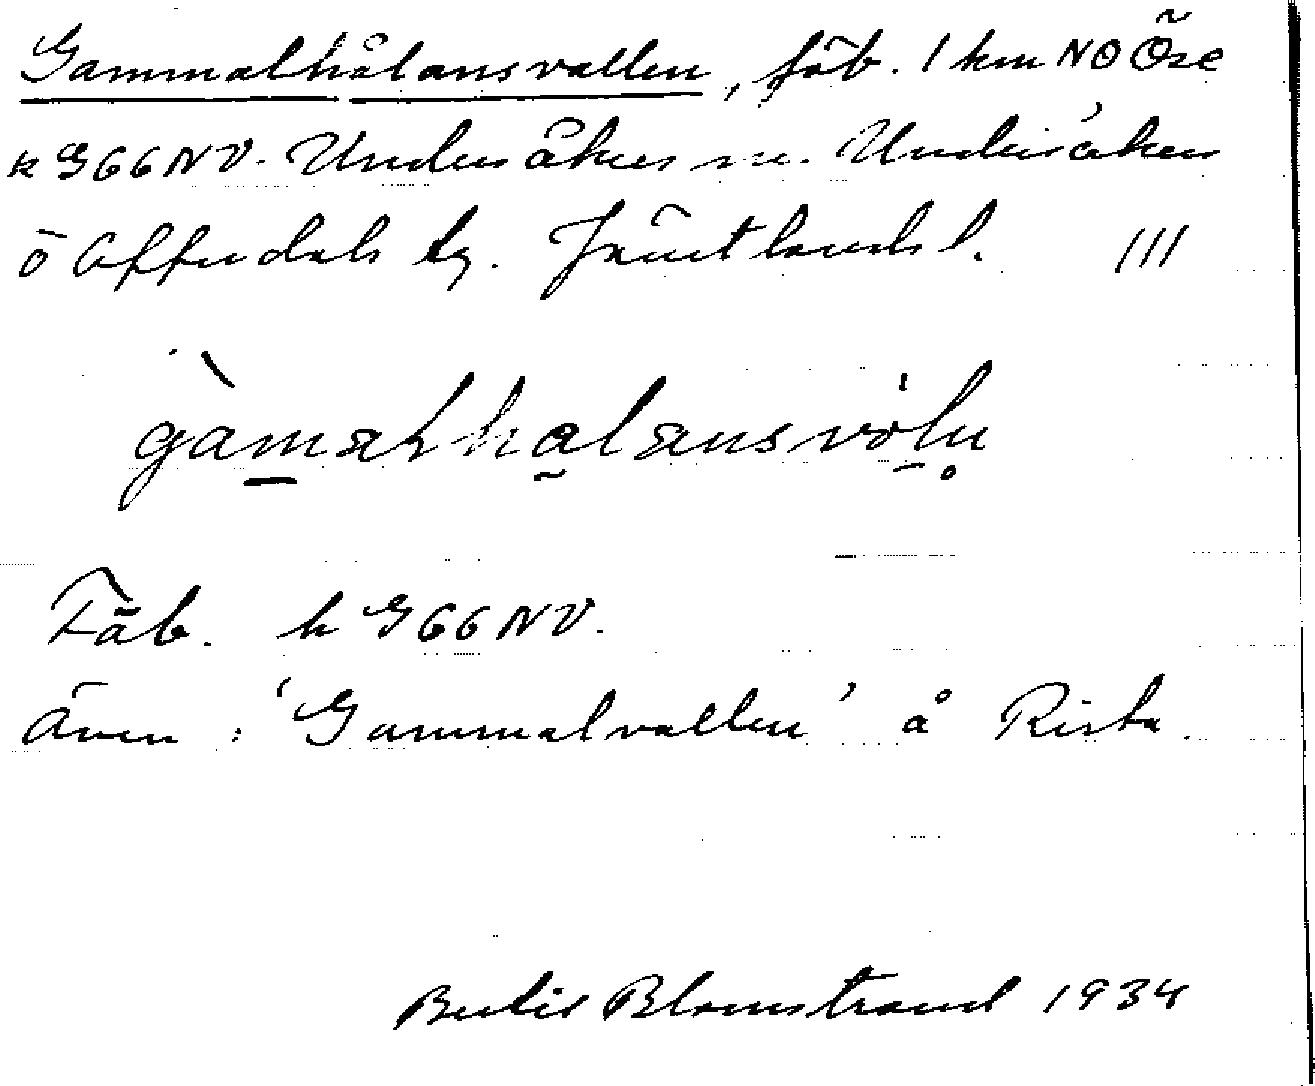 Gammalhålansvallen, fäb. 1 km NO Öse
k G66NV. Undersåkers sn. Undersåkers
o Offerdals tg. Jämtlands l. III
gàmalhalansvòlu
Fäb. k G66NV.
Även: 'Gammalvallen' å Rista.
Bertil Blomstrand 1934